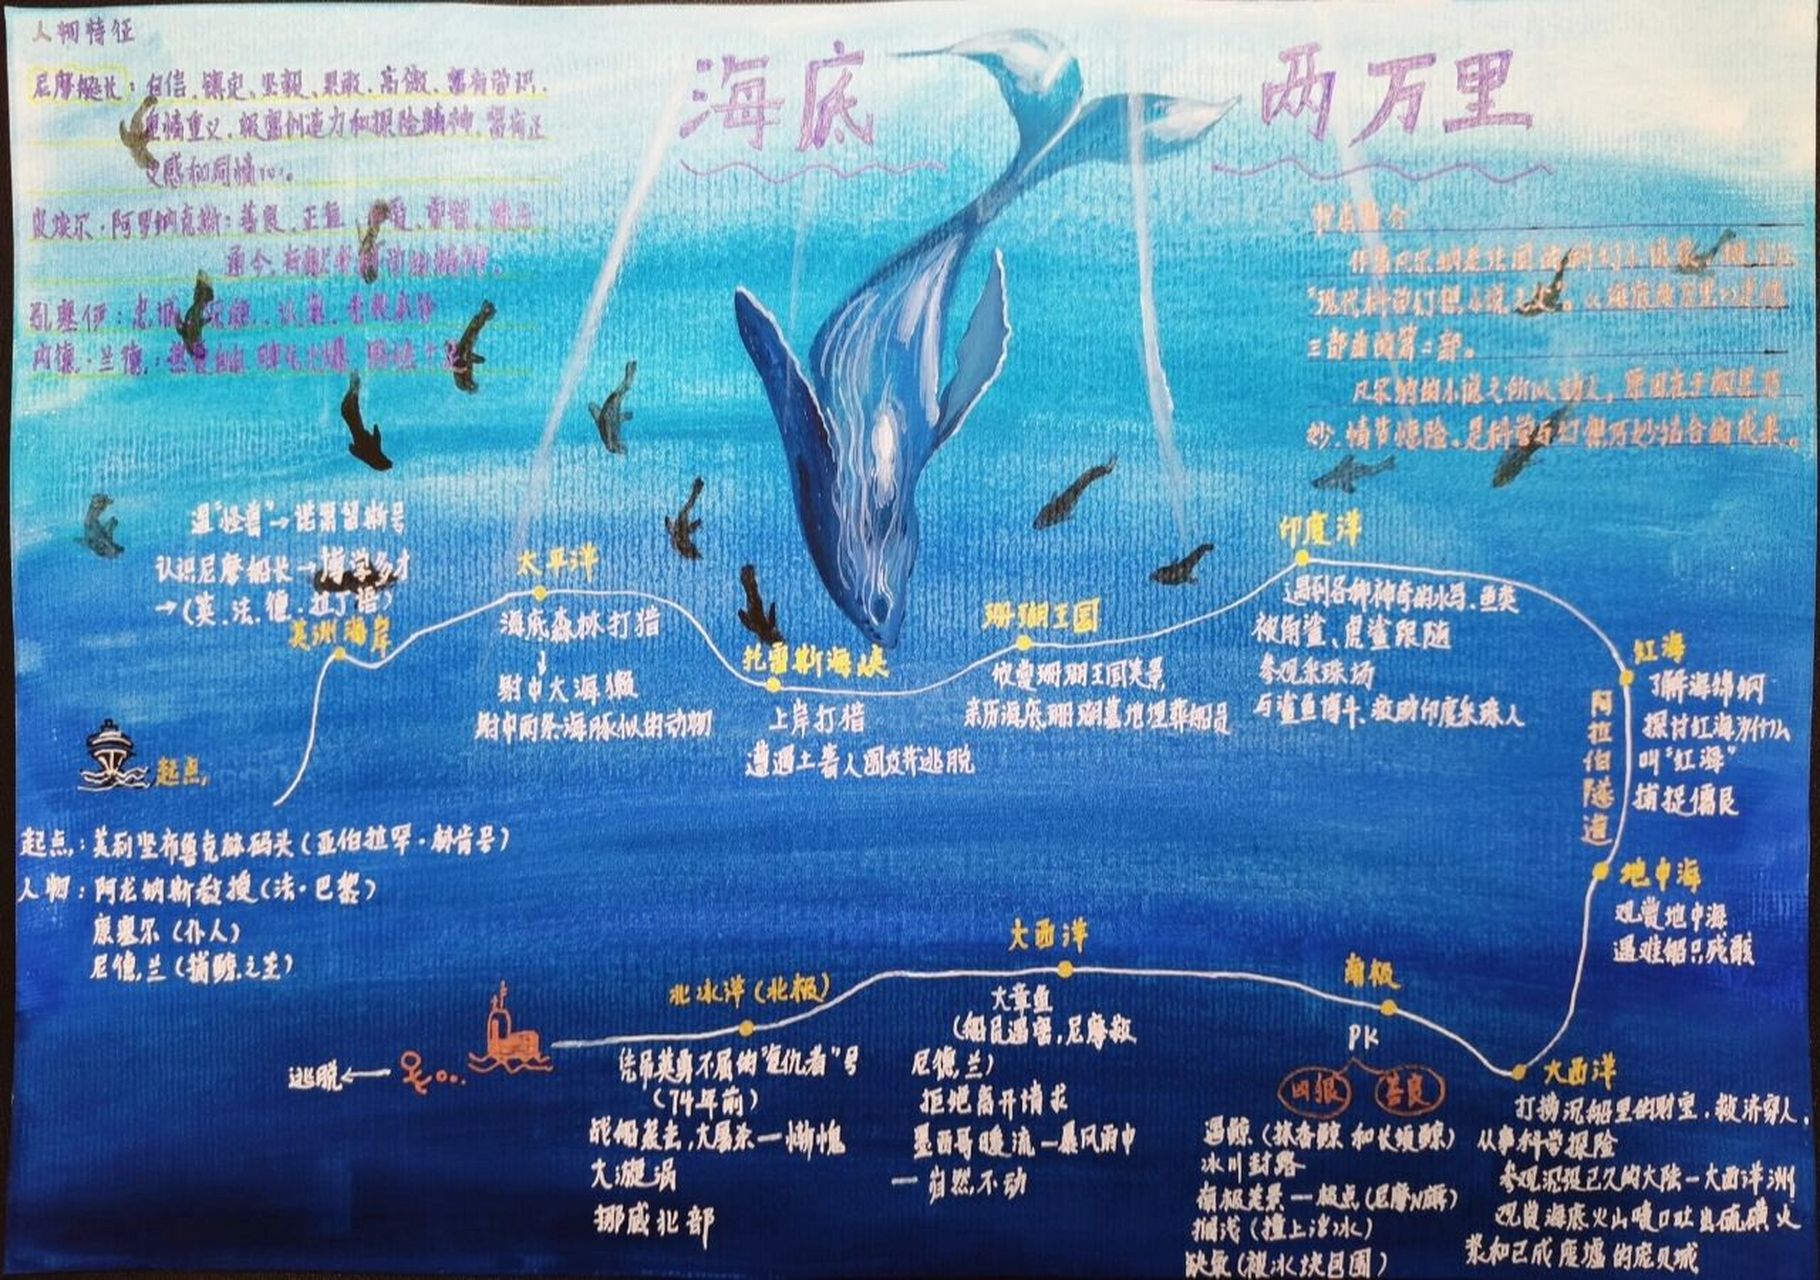 海底 两万里
人物特征
尼摩艇长：自信、镇定、坚毅、果敢、高傲、富有学识、
重情重义、极富创造力和探险精神、富有正
义感和同情心。
阿里纳克斯：善良、正直、
孔塞伊：忠诚、认真、
内德·兰德：
伊
"现代科学幻想小说之父"。《海底两万里》是他
三部曲的第二部。
凡尔纳的小说之所以动人，原因在于构思巧
妙、情节惊险、是科学与幻想巧妙结合的成果。
遇"怪兽"→诺第留斯号
认识尼摩船长→博学多才
→(英.法.德.拉丁语)
美洲海岸
太平洋
海底森林打猎
↓
射中大海獭
射中两条海豚似的动物
托雷斯海峡
上岸打猎
遭遇土著人围攻并逃脱
珊瑚王国
欣赏珊瑚王国美景
亲历海底珊瑚墓地埋葬船员
印度洋
遇到各种神奇的水鸟.鱼类
被角鲨、虎鲨跟随
参观采珠场
与鲨鱼搏斗、救助印度采珠人
红海
了解海绵纲
探讨红海为什么
叫"红海"
捕捉儒艮
阿拉伯隧道
地中海
观赏地中海
遇难船只残骸
起点,
起点,：美利坚布鲁克林码头(亚伯拉罕·林肯号)
人物：阿龙纳斯教授(法·巴黎)
康塞尔(仆人)
尼德.兰(捕鲸之王)
大西洋
打捞沉船里的财宝.救济穷人.
从事科学探险
参观沉没已久的大陆一大西洋洲
观赏海底火山喷口吐出硫磺火
浆和已成废墟的庞贝城
南极
PK
凶狠 善良
遇鲸(抹香鲸和长须鲸)
冰川封路
南极美景一极点(尼摩N旗)
搁浅(撞上冰)
缺氧(被冰块包围)
大西洋
大章鱼
(船员遇害,尼摩救
尼德.兰)
拒绝离开请求
墨西哥暖流一暴风雨中
一岿然不动
北冰洋(北极)
凭吊英勇不屈的"复仇者"号
(74年前)
战船袭击,大屠杀一惭愧
大漩涡
挪威北部
逃脱←